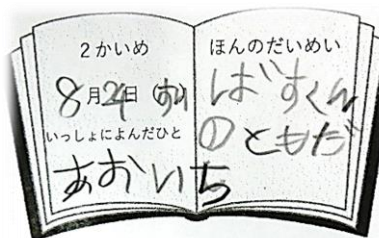 2かいめ
8月24日(すい)
いっしょによんだひと
あおい
ほんのだいめい
ばすくん
のともだ
ち